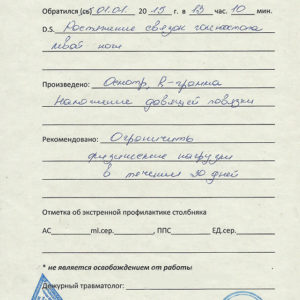 Обратился (ась) 01.01 2015 г. в 13 час. 10 мин.
D.S. Растяжение связок голеностопа
левой ноги
Произведено: Осмотр, R-грамма
Наложение давящей повязки
Рекомендовано: Ограничить
физические нагрузки
в течении 30 дней
Отметка об экстренной профилактике столбняка
АС ml.сер. , ППС ЕД.сер.
* не является освобождением от работы
Дежурный травматолог: